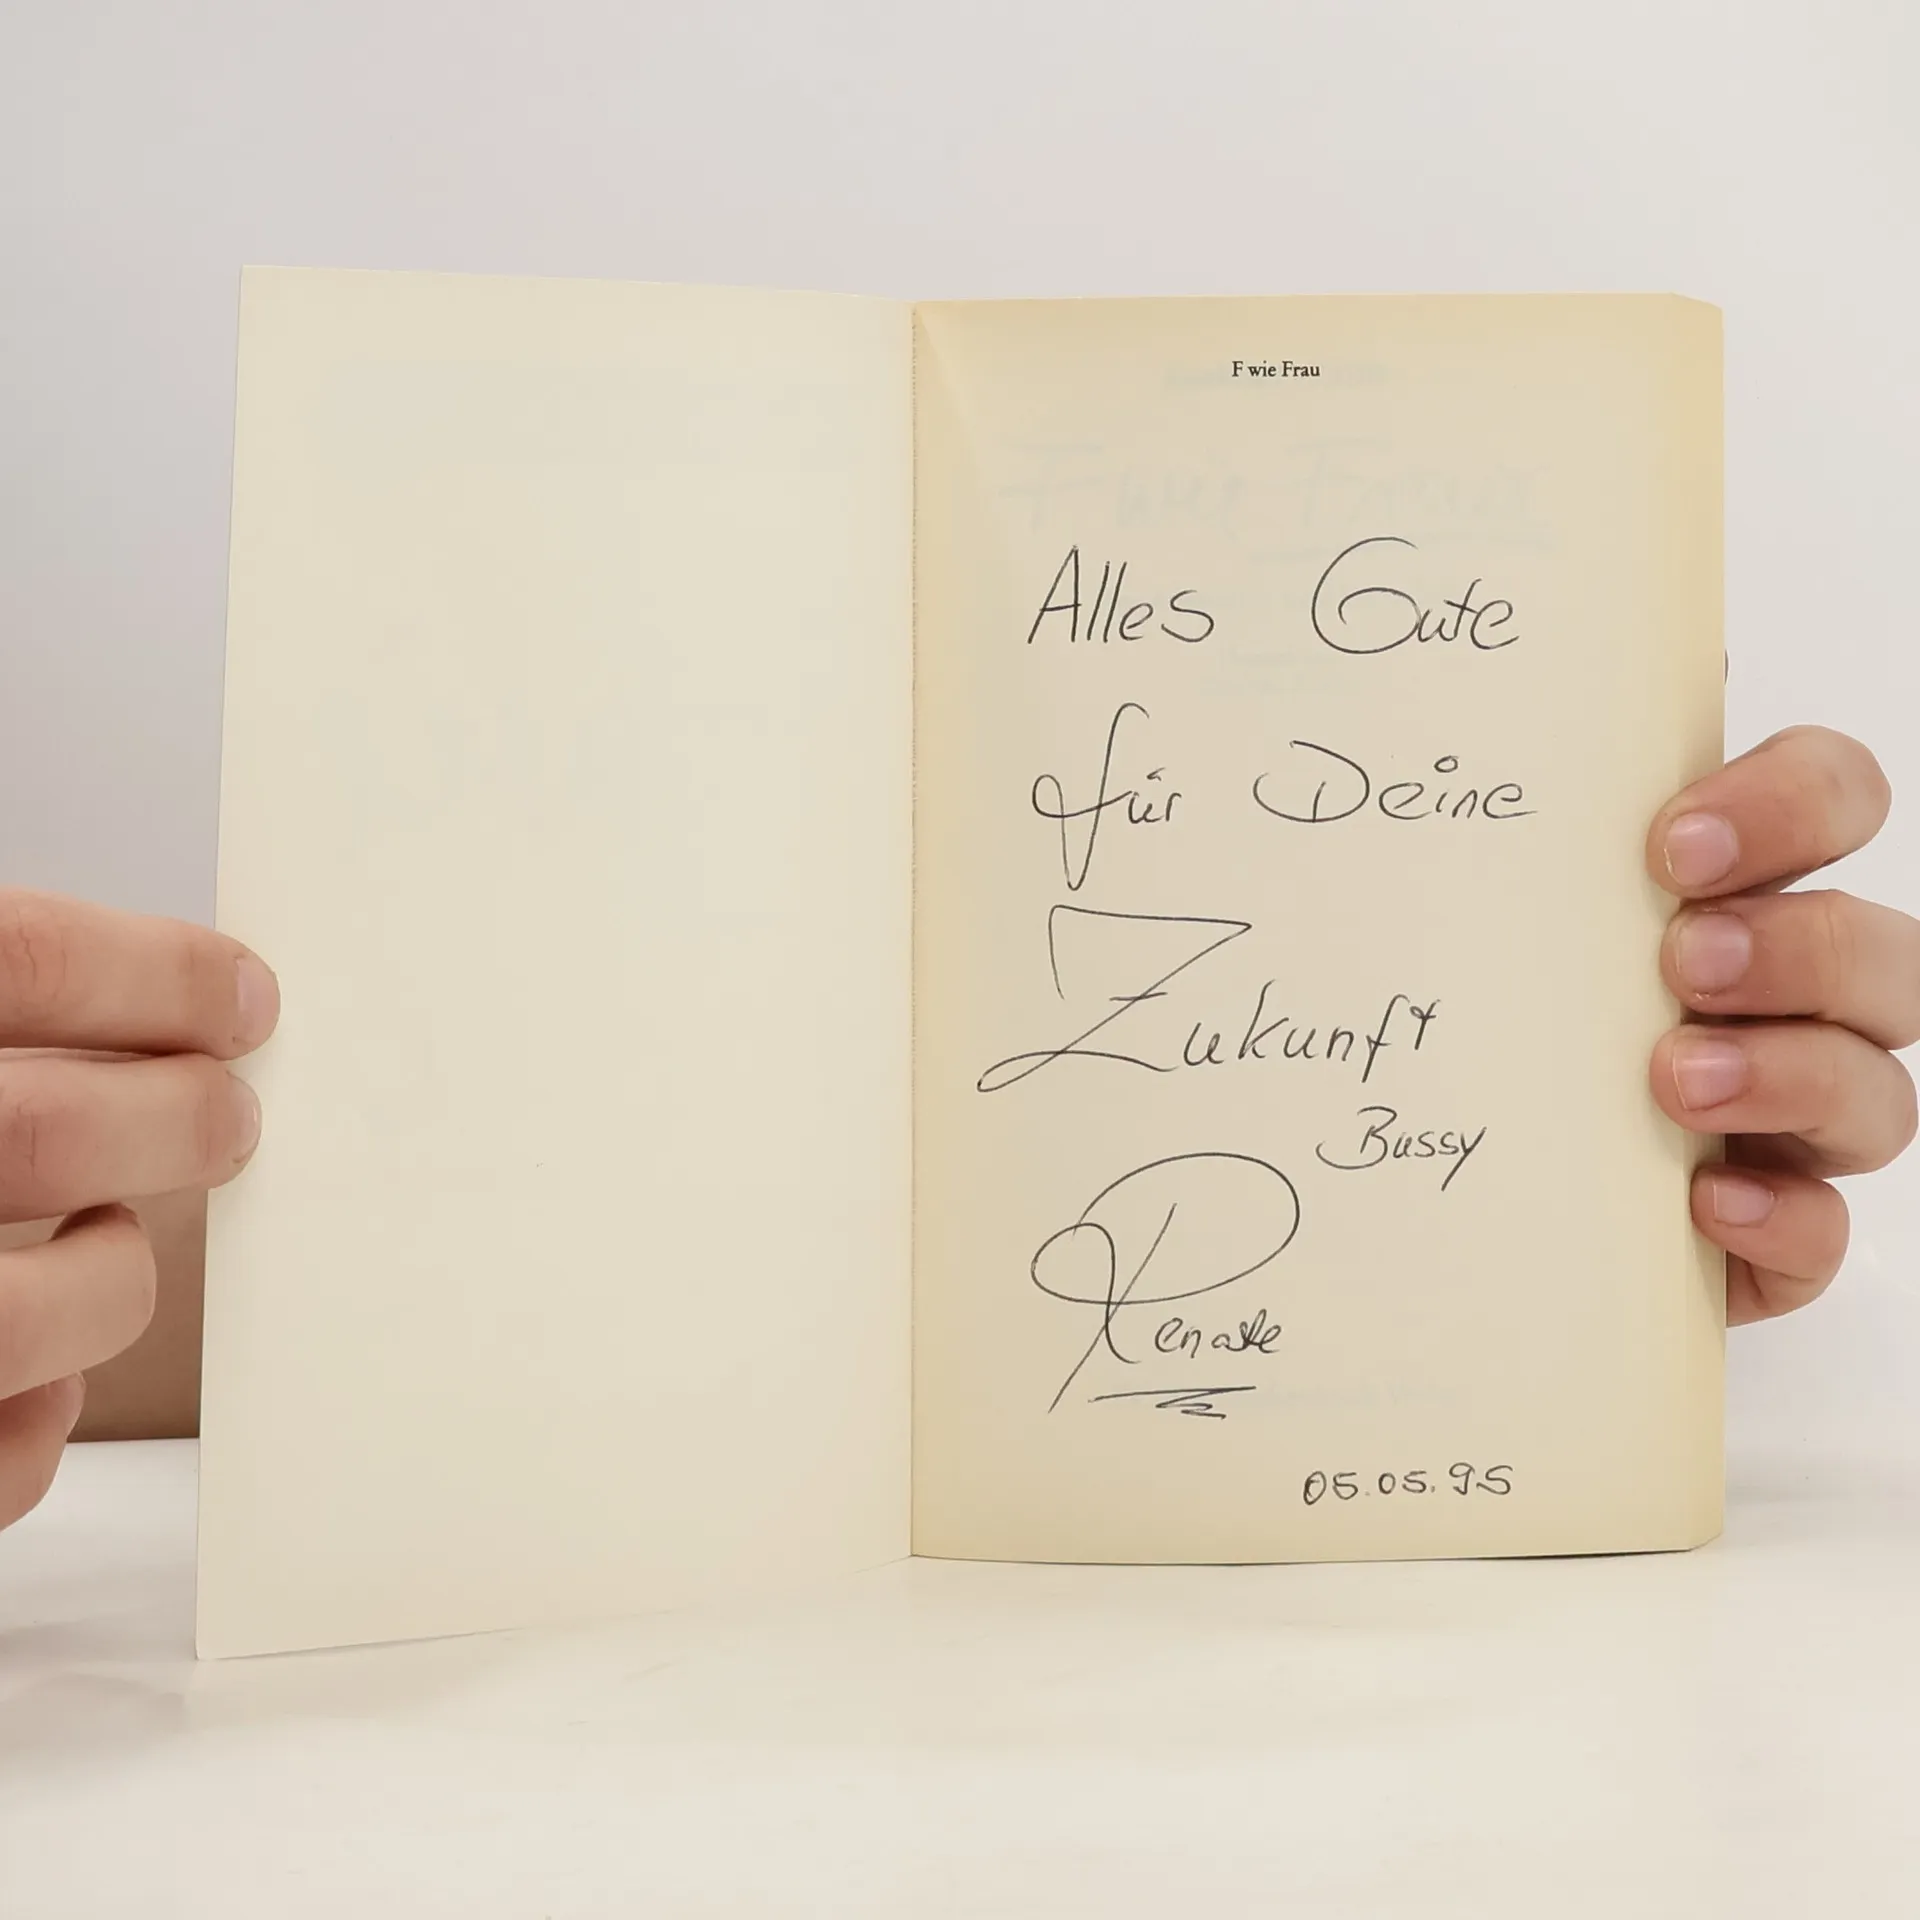 F wie Frau
Alles Gute
für Deine
Zukunft
Bussy
Renate
05.05.95